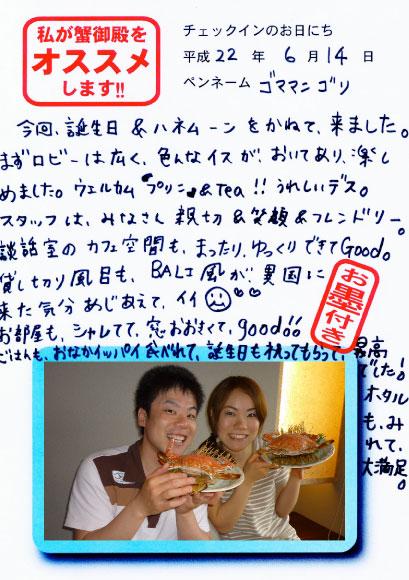 私が蟹御殿を
オススメ
します!!
チェックインのお日にち
平成 22 年 6 月 14 日
ペンネーム ゴママニ ゴリ
今回、誕生日 & ハネムーン をかねて、来ました。
まずロビーは広く、色んなイスが、おいてあり、楽し
めました。ウェルカム プリン & Tea !! うれしいデス。
スタッフ は、みなさん 親切 & 笑顔 & フレンドリー。
談話室の カフェ空間も、まったり、ゆっくり できて Good。
貸し切り 風目も、BALI 風が、異国に
来た気分 あじあえて、イイ
お部屋も、シャレてて、窓おおきくて、good!!
お墨付き
ごはんも、おなかイッパイ 食べれて、誕生日も祝ってもらって、最高
でした!
オタル
も、み
れて、
大満足。